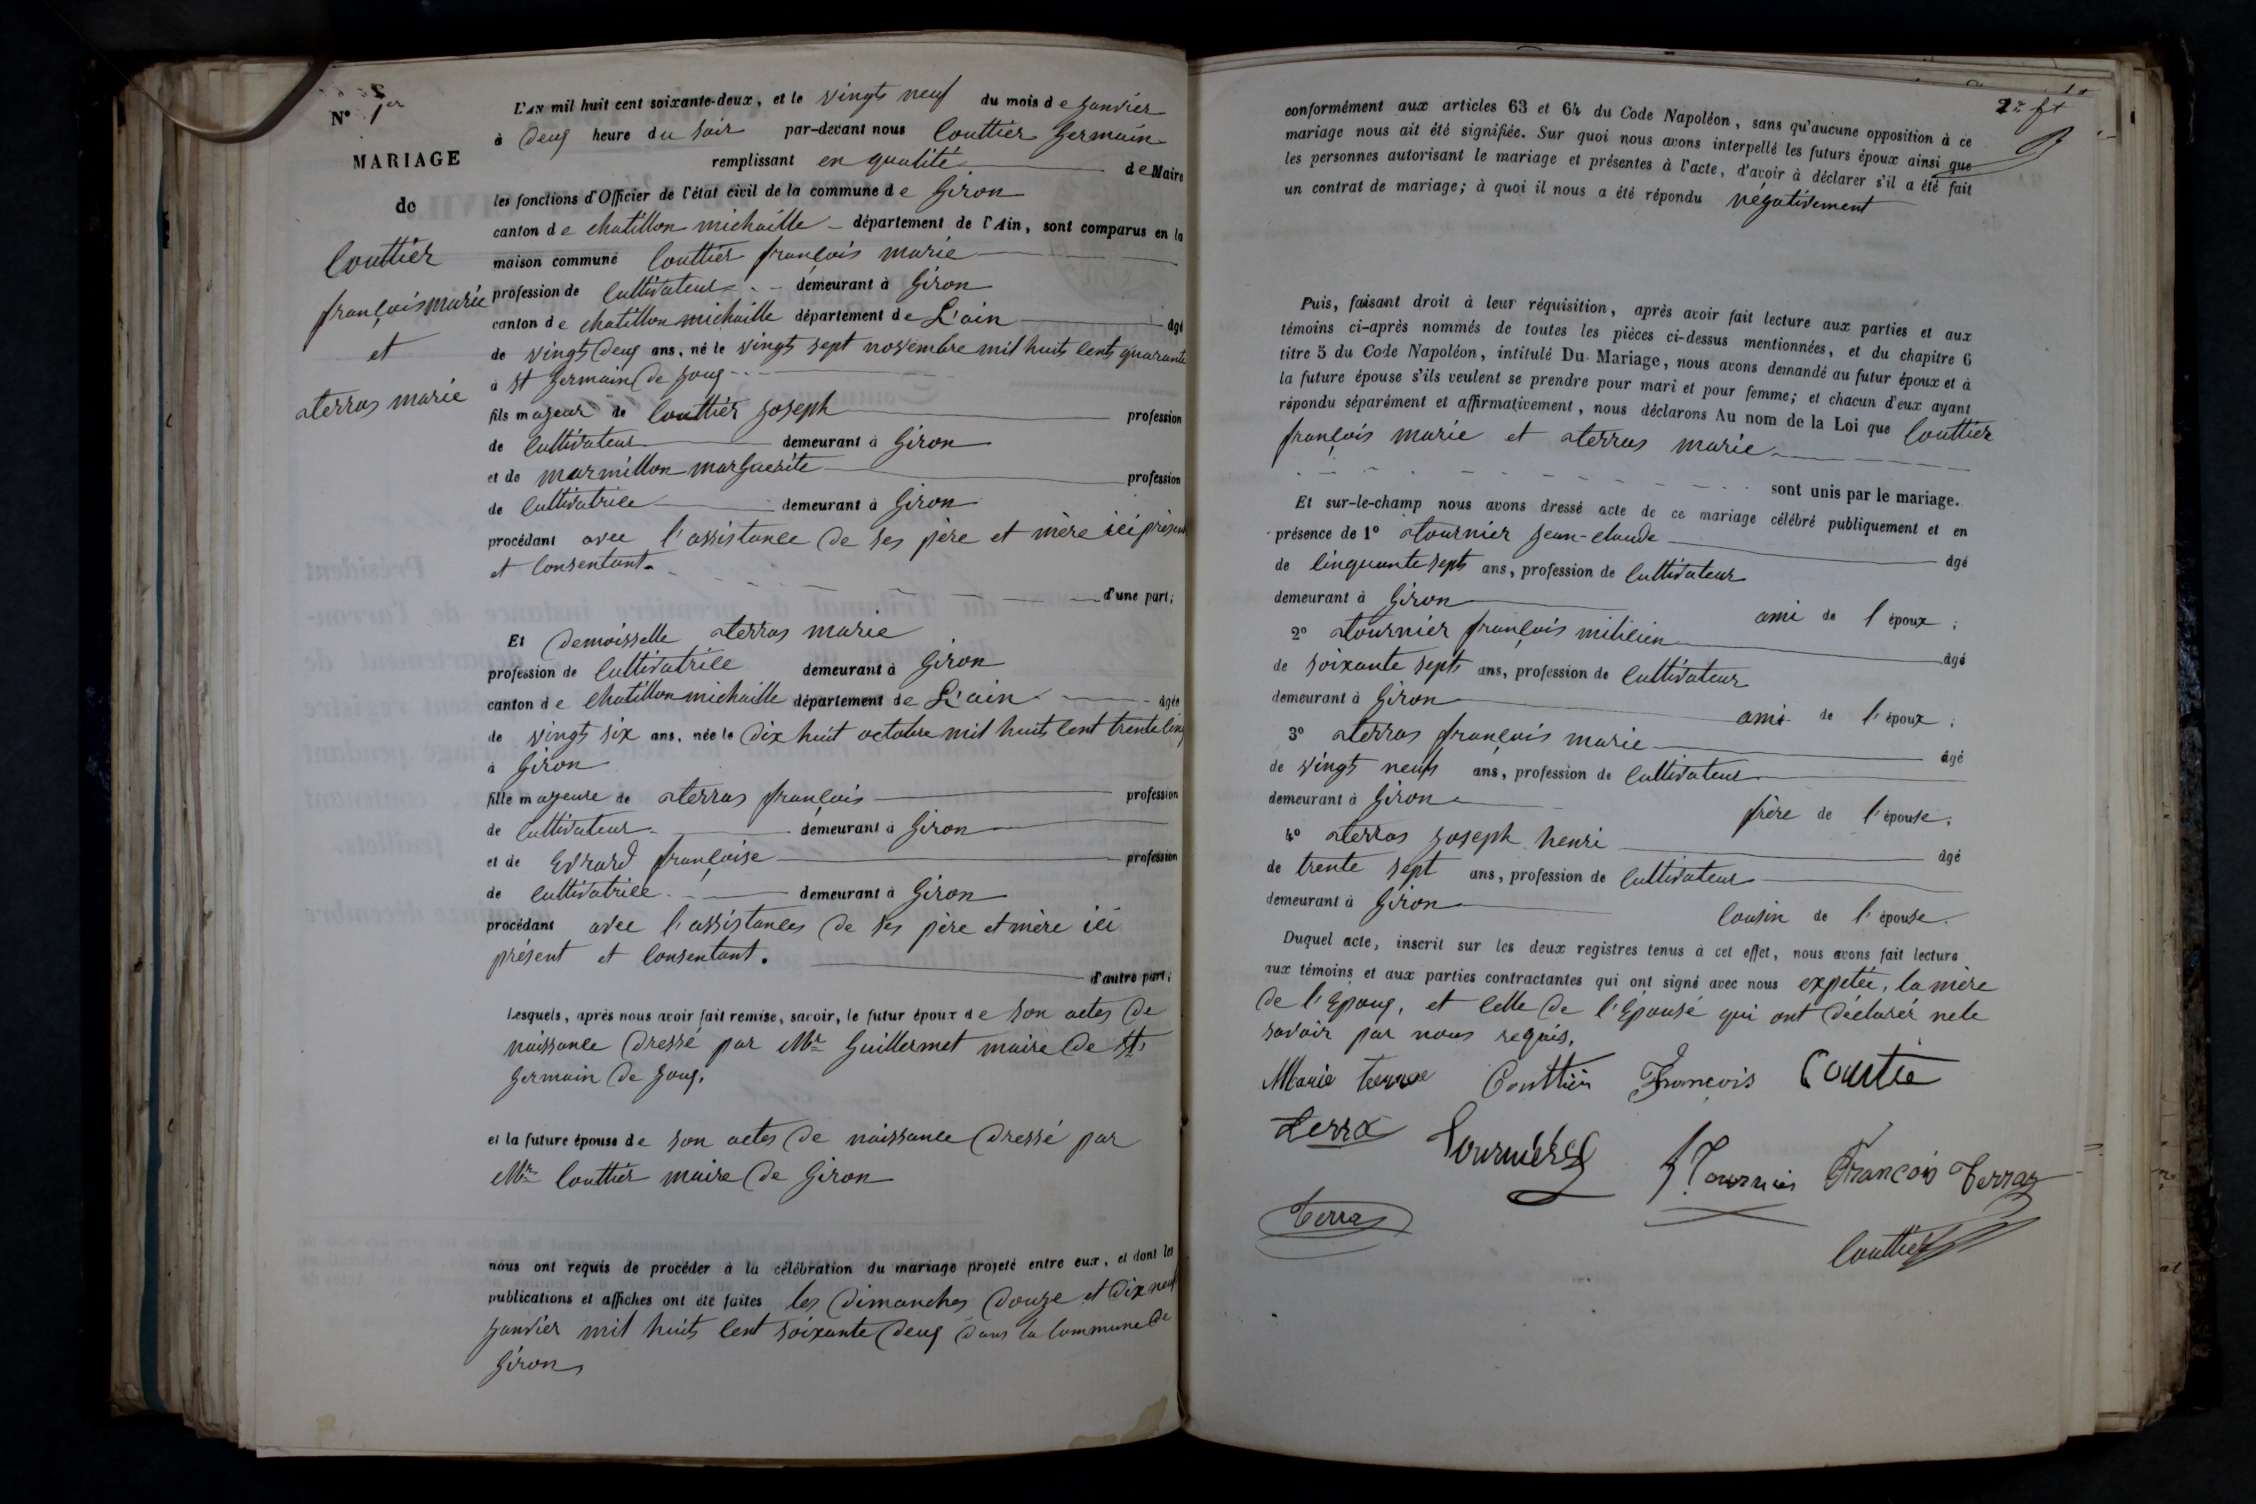 N° 1er
MARIAGE
de
Couttier
françois marie
et
terras marie
L'AN mil huit cent soixante-deux, et le vingts neuf du mois de janvier
à deux heure du soir par-devant nous Couttier germain
remplissant en qualité de Maire
les fonctions d'Officier de l'état civil de la commune de Giron
canton de chatillon michaille département de l'Ain, sont comparus en la
maison commune Couttier françois marie
profession de Cultivateur demeurant à Giron
canton de chatillon michaille département de L'ain âgé
de vingts deux ans, né le vingts sept novembre mil huits cents quarante
à St germain de joux
fils majeur de Couttier joseph profession
de Cultivateur demeurant à Giron
et de marmillon marguerite profession
de Cultivatrice demeurant à Giron
procédant avec l'assistance de ses père et mère ici présent
et Consentant.
d'une part;
Et demoisselle terras marie
profession de Cultivatrice demeurant à Giron
canton de chatillon michaille département de L'ain âgée
de vingts six ans, née le dix huit octobre mil huits cent trente cinq
à Giron
fille majeure de terras françois profession
de Cultivateur demeurant à Giron
et de Evrard françoise profession
de Cultivatrice demeurant à Giron
procédant avec l'assistances de ses père et mère ici
présent et Consentant.
d'autre part;
Lesquels, après nous avoir fait remise, savoir, le futur époux de son actes de
naissance dressé par Mr Guillermet maire de St
germain de joux,
et la future épouse de son actes de naissance dressé par
Mr Couttier maire de Giron
nous ont requis de procéder à la célébration du mariage projeté entre eux, et dont les
publications et affiches ont été faites les dimanches douze et dix neuf
janvier mil huits cent soixante deux dans la Commune de
Giron
2e ft
conformément aux articles 63 et 64 du Code Napoléon, sans qu'aucune opposition à ce
mariage nous ait été signifiée. Sur quoi nous avons interpellé les futurs époux ainsi que
les personnes autorisant le mariage et présentes à l'acte, d'avoir à déclarer s'il a été fait
un contrat de mariage; à quoi il nous a été répondu négativement
Puis, faisant droit à leur réquisition, après avoir fait lecture aux parties et aux
témoins ci-après nommés de toutes les pièces ci-dessus mentionnées, et du chapitre 6
titre 5 du Code Napoléon, intitulé Du Mariage, nous avons demandé au futur époux et à
la future épouse s'ils veulent se prendre pour mari et pour femme; et chacun d'eux ayant
répondu séparément et affirmativement, nous déclarons Au nom de la Loi que Couttier
françois marie et terras marie
sont unis par le mariage.
Et sur-le-champ nous avons dressé acte de ce mariage célébré publiquement et en
présence de 1° tournier jean-claude âgé
de Cinquante septs ans, profession de Cultivateur
demeurant à Giron ami de l'époux;
2° tournier françois milicien âgé
de soixante septs ans, profession de Cultivateur
demeurant à Giron ami de l'époux;
3° terras françois marie âgé
de vingts neufs ans, profession de Cultivateur
demeurant à Giron frère de l'épouse,
4° terras joseph henri âgé
de trente sept ans, profession de Cultivateur
demeurant à Giron Cousin de l'épouse.
Duquel acte, inscrit sur les deux registres tenus à cet effet, nous avons fait lecture
aux témoins et aux parties contractantes qui ont signé avec nous expetée, la mère
de l'Epoux, et Celle de l'Epousé qui ont déclarér nele
savoir par nous requis,
Marie terras Couttier François Coutie
Terra Tournier F Tournier François Terraz
Terras
Couttier